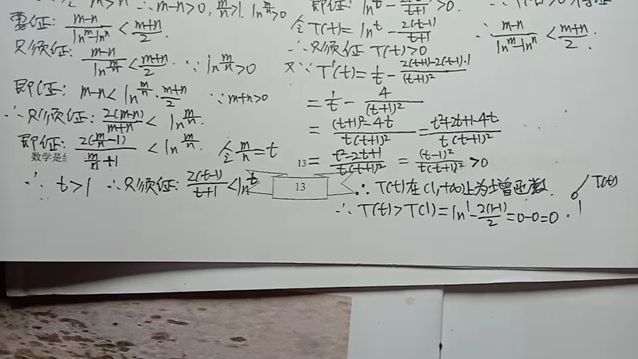 ∵ m-n>0, m/n>1, ln m/n>0
要证: (m-n)/(ln m-ln n) < (m+n)/2.
只须证: (m-n)/(ln m/n) < (m+n)/2 ∵ ln m/n>0
即证: m-n< ln m/n · (m+n)/2 ∵ m+n>0
∴ 只须证: 2(m-n)/(m+n) < ln m/n.
即证: 2(m/n-1)/(m/n+1) < ln m/n. 令 m/n=t
数学是
∵ t>1 ∴只须证: 2(t-1)/(t+1) <ln t
即证: ln t - 2(t-1)/(t+1) >0.
令 T(t)= ln t - 2(t-1)/(t+1)
∴只须证 T(t)>0
又∵ T'(t)= 1/t - (2(t+1)-2(t-1)·1)/(t+1)²
= 1/t - 4/(t+1)²
= ((t+1)²-4t)/(t(t+1)²) = (t²+2t+1-4t)/(t(t+1)²)
13 = (t²-2t+1)/(t(t+1)²) = (t-1)²/(t(t+1)²) >0
13
∴ T(t)在(1,+∞)上为增函数
∴ T(t)>T(1)=ln1-2(1-1)/2=0-0=0.
T(t)
1
∴ (m-n)/(ln m-ln n) < (m+n)/2.